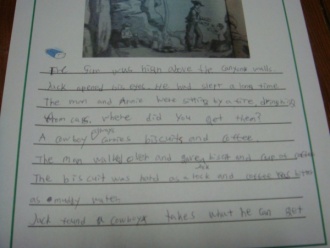 The Sun was high above the canyon walls
Jack opened his eyes. He had slept a long time
The man and Annie were sitting by a fire, drinking
from cups. where did you get them?
A cowboy always carries biscuits and coffee.
The man walked over and gave Jack and
The biscuit was hard as a rock and coffee was bitter
as muddy water.
Jack found a cowboy takes what he can get